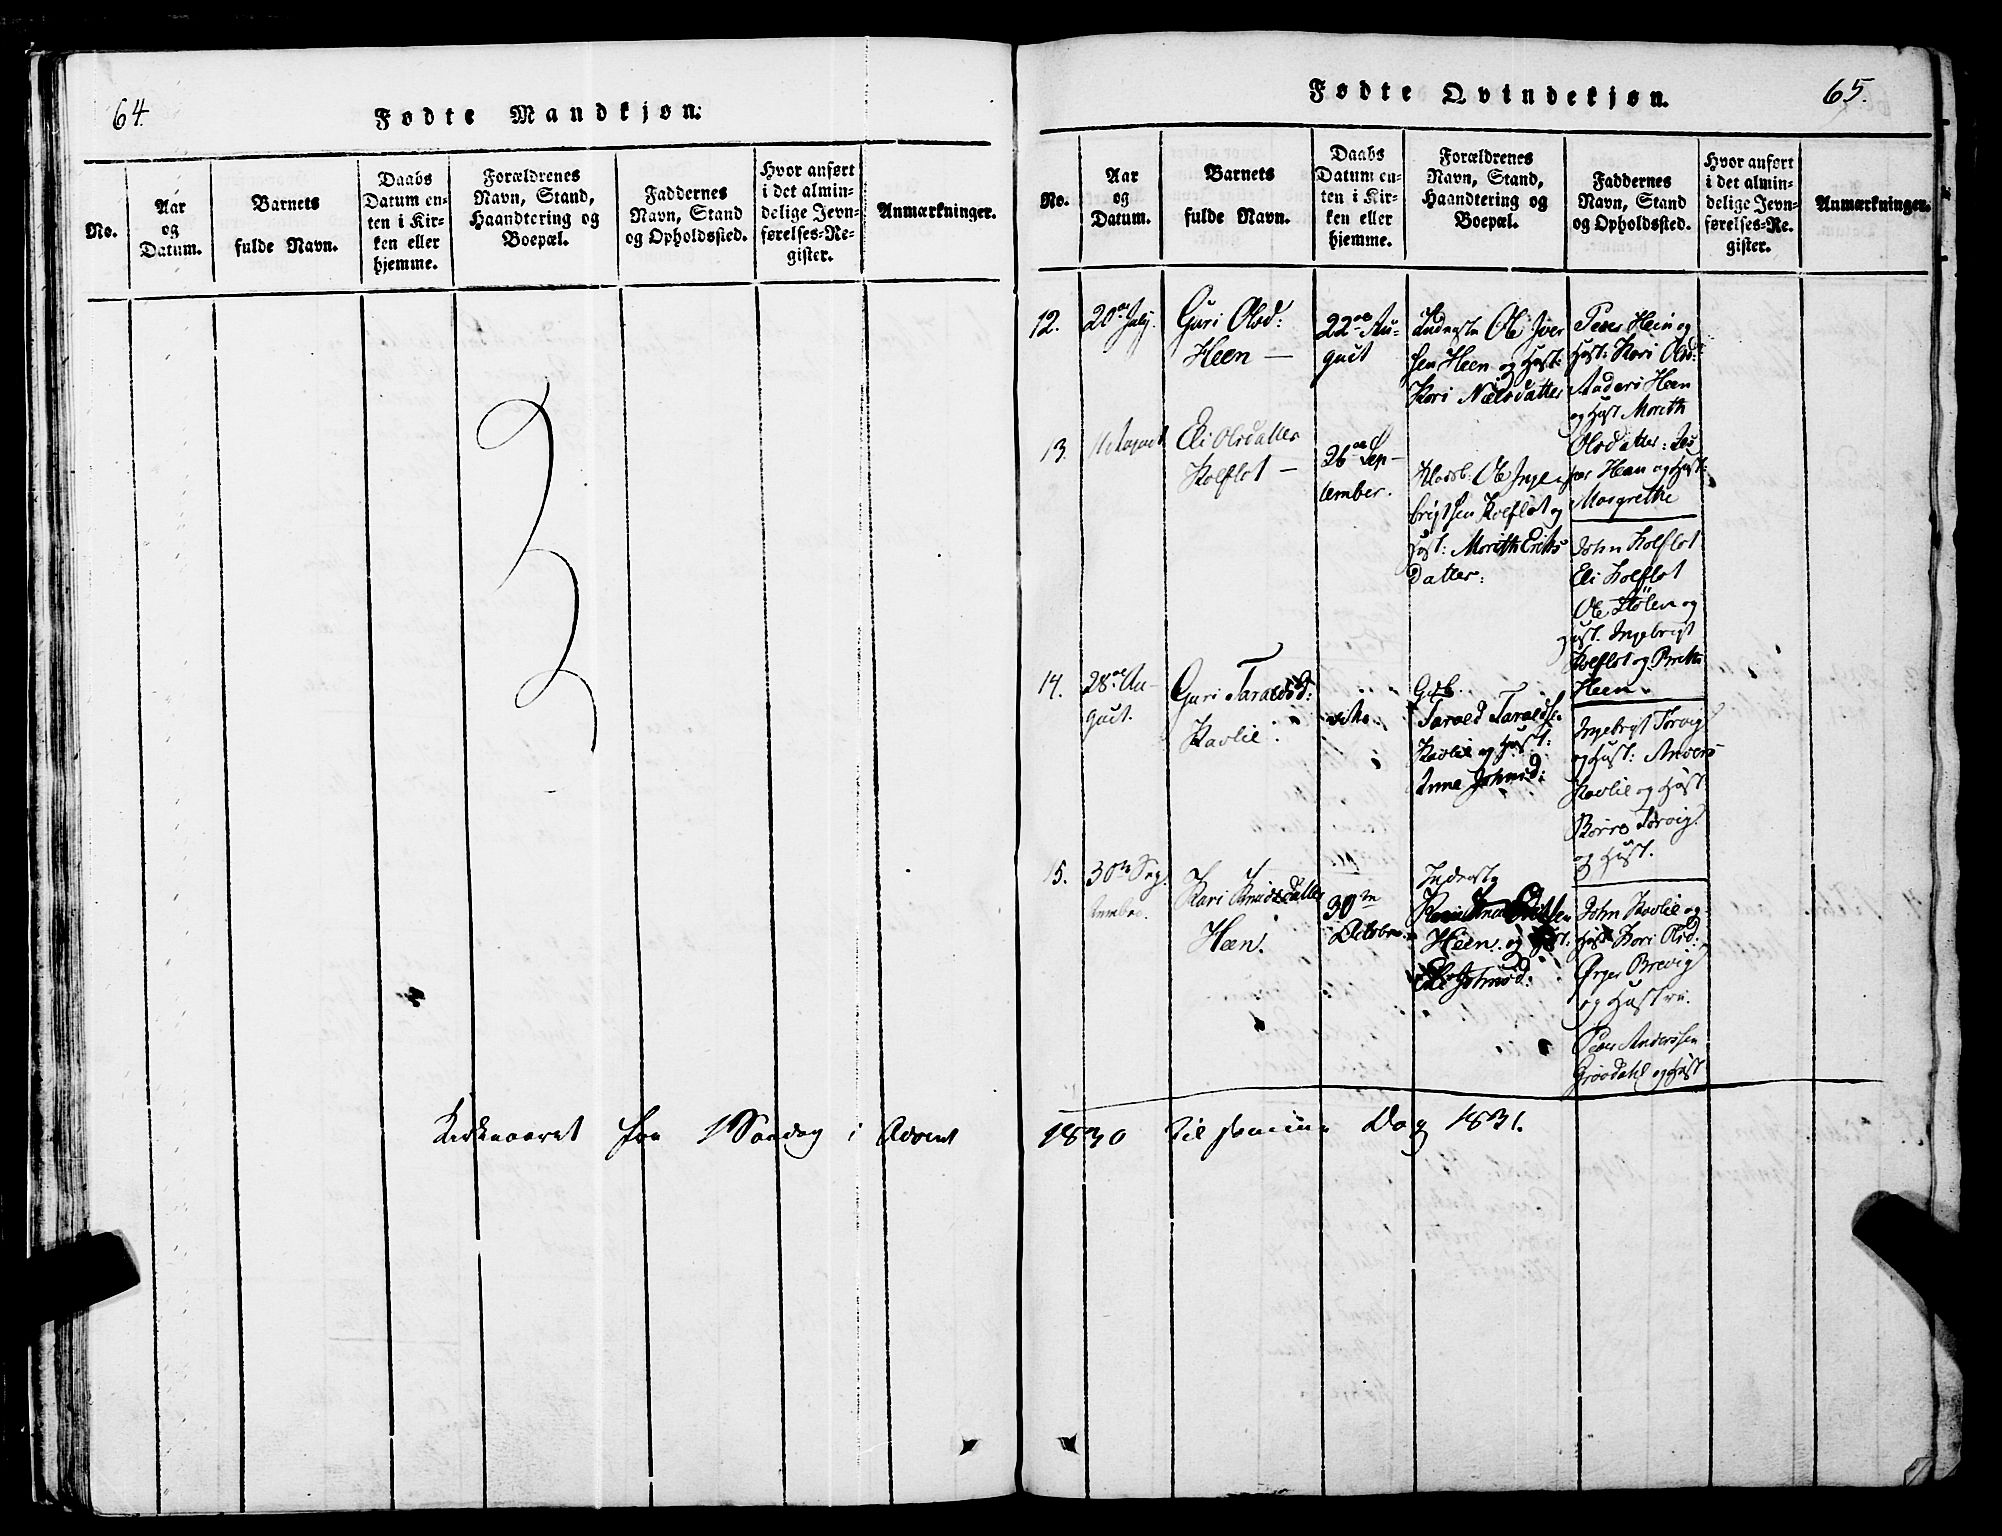 64.
Fødte Mandkjøn:
No.
Aar
og
Datum.
Barnets
fulde Navn.
Daabs
Datum en-
ten i Kir-
ken eller
hjemme.
Forældrenes
Navn, Stand,
Haandtering og
Boepæl.
Faddernes
Navn, Stand
og Opholdssted.
Hvor anført
i det almin-
delige Jevn-
førelses-Re-
gister.
Anmærkninger.
Fødte Qvindekjøn.
65.
No.
Aar
og
Datum.
Barnets
fulde Navn.
Daabs
Datum en-
ten i Kir-
ken eller
hjemme.
Forældrenes
Navn, Stand,
Haandtering og
Boepæl.
Faddernes
Navn, Stand
og Opholdssted.
Hvor anført
i det almin-
delige Jevn-
førelses-Re-
gister.
Anmærkninger.
12.
20de July.
Guri Olsd:
Heen —
22de Au-
gust
Inderste Ole Iver
sen Heen og Hust:
Kari Nielsdatter
Peder Hein og
Hust: Kari Olsd:
Anders Heen
og Hust Marith
Olsdatter:
Heen og Hust:
Margrethe
13.
11 August
Eli Olsdatter
Kolflot —
26de Sep-
tember.
Ole Inge-
brigtsen Kolflot og
Hust: Marith Eriks
datter:
John Kolflot
Eli Kolflot
Ole Stölen og
Hust. Ingebrigt
Kolflot og
Heen.
14.
28de Au-
gust.
Guri Taraldsd:
Kavlie.
Gdb.
Tarald Taraldse.
Kavlie og Hust:
Anne Johnsd:
Ingebrigt Torvig
og Hust: Anders
Kavlie og Hust
Torvig
og Hust.
15.
30te Sep
tember.
Kari Knudsdatter
Heen.
30te
October
Inderste
Heen og Hust.
Eli Johnsd:
John Kavlie og
Hust Kari Olsd:
Brevig
og Hustru.
Peder Anderssen
Grøvdahl og Hust
Kirkeaaret fra 1 Søndag i Advent 1830 til samme Dag 1831.